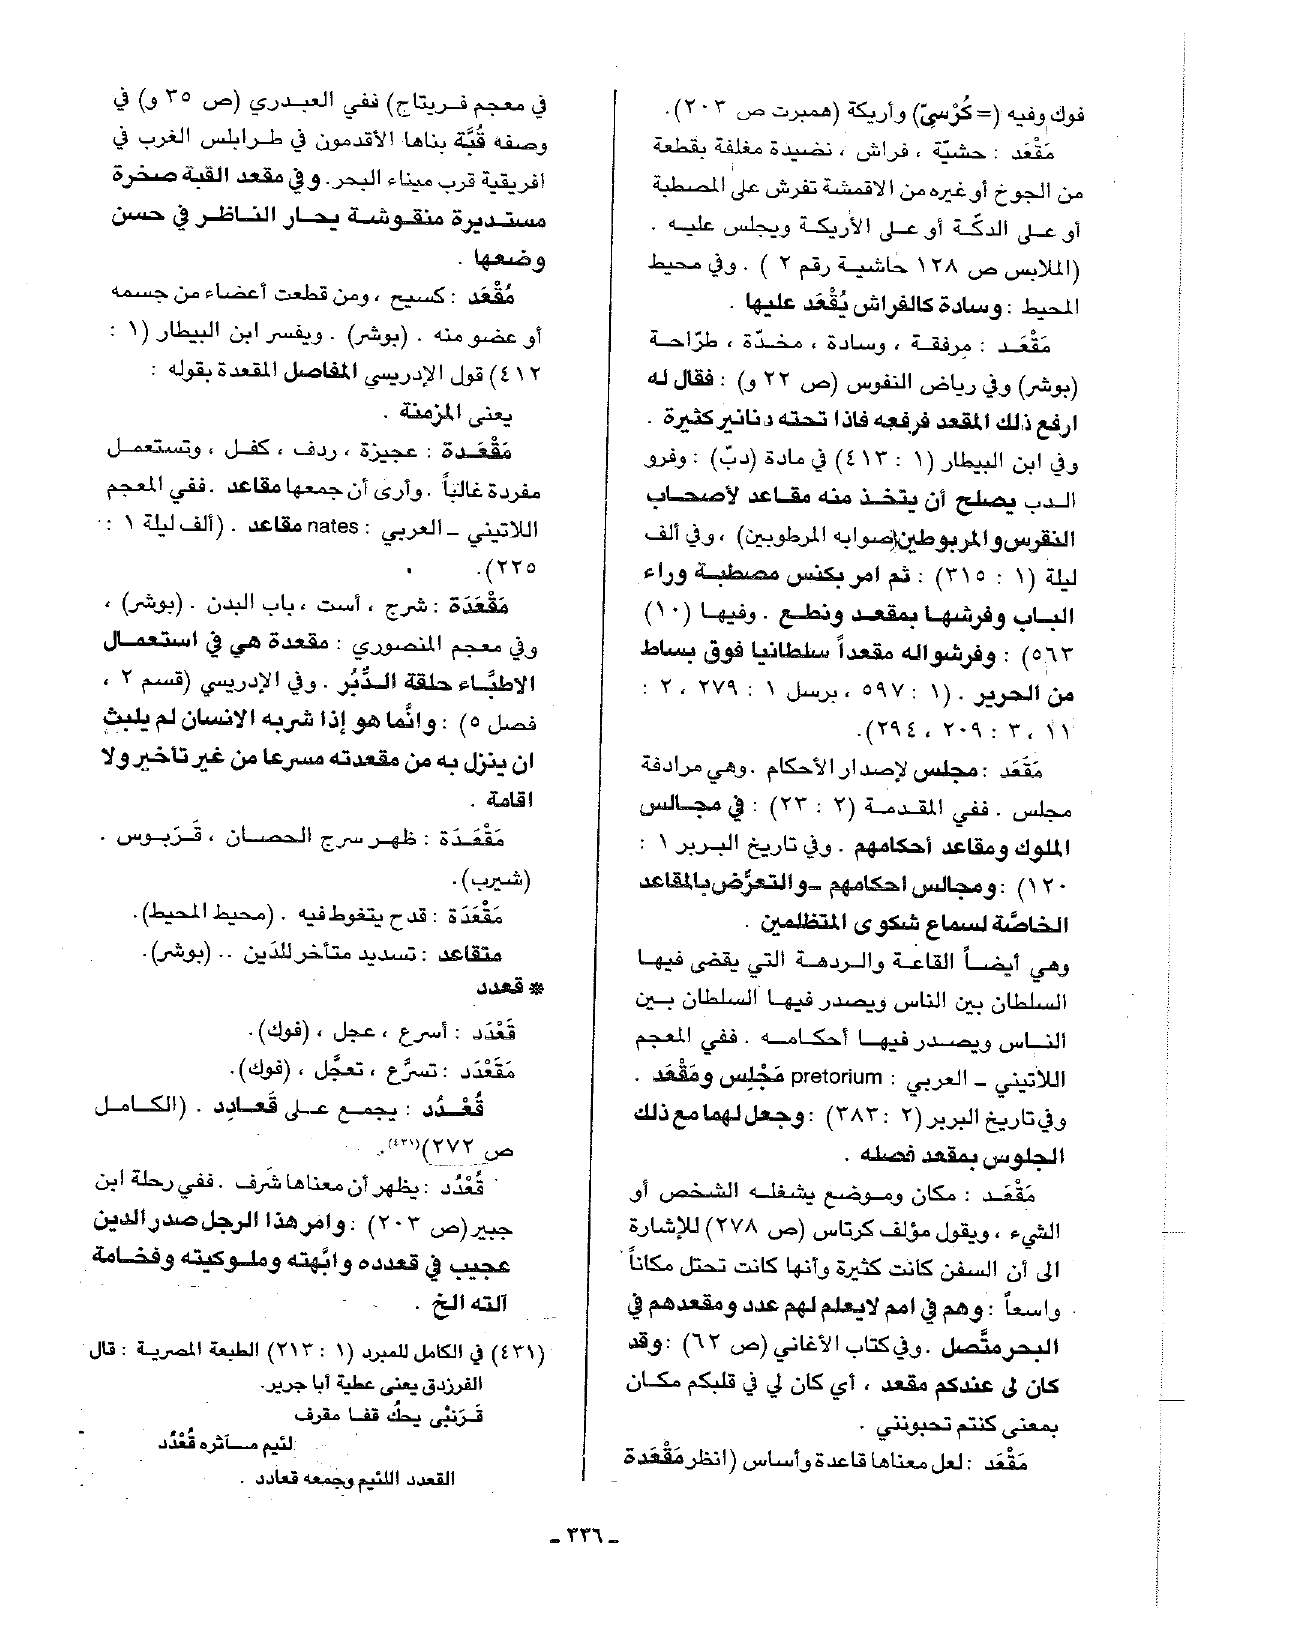 فوك وفيه (= كُرْسيّ) وأريكة (همبرت ص ٢٠٣).
مَقْعَد : حشيّة ، فراش ، نضيدة مغلفة بقطعة
من الجوخ أو غيره من الاقمشة تفرش على المصطبة
أو على الدكّة أو على الأريكة ويجلس عليه .
(الملابس ص ١٢٨ حاشية رقم ٢ ) . وفي محيط
المحيط : وسادة كالفراش يُقْعَد عليها .
مَقْعَد : مرفقة ، وسادة ، مخدّة ، طرّاحة
(بوشر) وفي رياض النفوس (ص ٢٢ و) : فقال له
ارفع ذلك المقعد فرفعه فاذا تحته دنانير كثيرة .
وفي ابن البيطار (١ : ٤١٣) في مادة (دبّ) : وفرو
الدب يصلح أن يتخذ منه مقاعد لأصحاب
النقرس والمربوطين(صوابه المرطوبين) ، وفي ألف
ليلة (١ : ٣١٥) : ثم امر بكنس مصطبة وراء
الباب وفرشها بمقعد ونطع . وفيها (١٠)
٥٦٣) : وفرشواله مقعداً سلطانيا فوق بساط
من الحرير . (١ : ٥٩٧ ، برسل ١ : ٢٧٩ ، ٢ :
١١ ، ٣ : ٢٠٩ ، ٢٩٤).
مَقْعَد : مجلس لإصدار الأحكام . وهي مرادفة
مجلس . ففي المقدمة (٢ : ٢٣) : في مجالس
الملوك ومقاعد أحكامهم . وفي تاريخ البربر ١ :
١٢٠) : ومجالس احكامهم – والتعرُّض بالمقاعد
الخاصَّة لسماع شكوى المتظلمين .
وهي أيضاً القاعة والردهة التي يقضى فيها
السلطان بين الناس ويصدر فيها السلطان بين
الناس ويصدر فيها أحكامه . ففي المعجم
اللاتيني – العربي : pretorium مَجْلِس ومَقْعَد .
وفي تاريخ البربر (٢ : ٣٨٣) : وجعل لهما مع ذلك
الجلوس بمقعد فصله .
مَقْعَد : مكان وموضع يشغله الشخص أو
الشيء ، ويقول مؤلف كرتاس (ص ٢٧٨) للإشارة
الى أن السفن كانت كثيرة وأنها كانت تحتل مكاناً
واسعاً : وهم في امم لايعلم لهم عدد ومقعدهم في
البحر متَّصل . وفي كتاب الأغاني (ص ٦٢) : وقد
كان لى عندكم مقعد ، أي كان لي في قلبكم مكان
بمعنى كنتم تحبونني .
مَقْعَد : لعل معناها قاعدة وأساس (انظر مَقْعَدة
في معجم فريتاج) ففي العبدري (ص ٣٥ و) في
وصفه قُبَّة بناها الأقدمون في طرابلس الغرب في
افريقية قرب ميناء البحر. وفي مقعد القبة صخرة
مستديرة منقوشة يحار الناظر في حسن
وضعها .
مُقْعَد : كسيح ، ومن قطعت أعضاء من جسمه
أو عضو منه . (بوشر) . ويفسر ابن البيطار (١ :
٤١٢) قول الإدريسي المفاصل المقعدة بقوله :
يعنى المزمنة .
مَقْعَدة : عجيزة ، ردف ، كفل ، وتستعمل
مفردة غالباً . وأرى أن جمعها مقاعد . ففي المعجم
اللاتيني – العربي : nates مقاعد . (ألف ليلة ١ :
٢٢٥).
مَقْعَدَة : شرج ، أست ، باب البدن . (بوشر) ،
وفي معجم المنصوري : مقعدة هي في استعمال
الاطبَّاء حلقة الدُّبُر . وفي الإدريسي (قسم ٢ ،
فصل ٥) : وانَّما هو إذا شربه الانسان لم يلبث
ان ينزل به من مقعدته مسرعا من غير تأخير ولا
اقامة .
مَقْعَدَة : ظهر سرج الحصان ، قَرَبوس .
(شيرب).
مَقْعَدَة : قدح يتغوط فيه . (محيط المحيط).
متقاعد : تسديد متأخر للدَين .. (بوشر).
* قعدد
قَعْدَد : أسرع ، عجل ، (فوك).
مَقَعْدَد : تسرَّع ، تعجَّل ، (فوك).
قُعْدُد : يجمع على قَعادِد . (الكامل
ص ٢٧٢)(٤٣١).
قُعْدُد : يظهر أن معناها شَرف . ففي رحلة ابن
جبير (ص ٢٠٣) : وامر هذا الرجل صدر الدين
عجيب في قعدده وابَّهته وملوكيته وفخامة
آلته الخ .
(٤٣١) في الكامل للمبرد (١ : ٢١٣) الطبعة المصرية : قال
الفرزدق يعنى عطية أبا جرير.
قَرَنْبَى يحكُّ قفا مقرف
لئيم مآثره قُعْدُد
القعدد اللئيم وجمعه قعادد .
ـ ٣٣٦ ـ